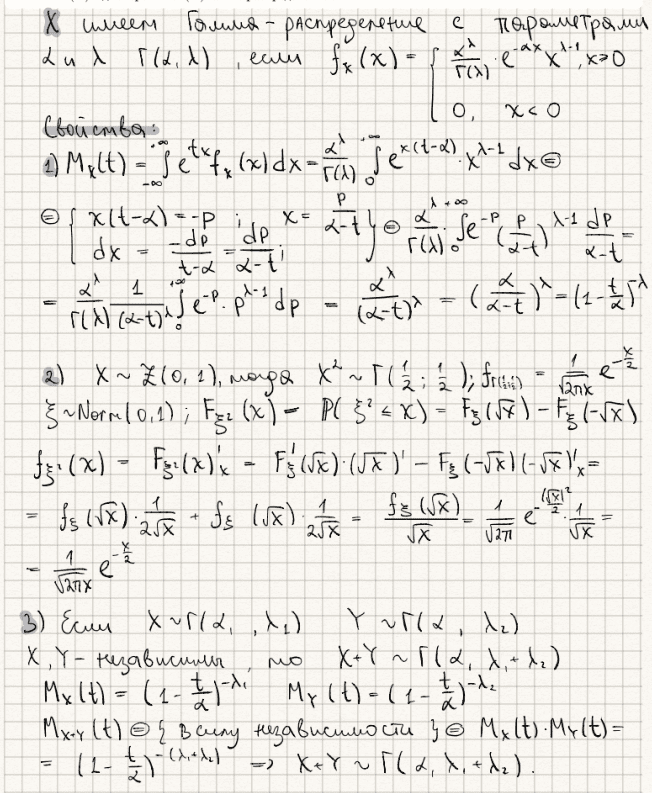 X имеет Гамма-распределение с параметрами
α и λ Γ(α, λ), если f_x(x) = { α^λ/Γ(λ) · e^{-αx} x^{λ-1}, x≥0
0, x<0
Свойства:
1) M_x(t) = ∫_{-∞}^{+∞} e^{tx} f_x(x) dx = α^λ/Γ(λ) ∫_0^{+∞} e^{x(t-α)} · x^{λ-1} dx ⊜
⊜ { x(t-α) = -p ; x = p/(α-t) dx = -dp/(t-α) = dp/(α-t); } ⊜ α^λ/Γ(λ) · ∫_0^{+∞} e^{-p} (p/(α-t))^{λ-1} dp/(α-t) =
= α^λ/Γ(λ) 1/(α-t)^λ ∫_0^{+∞} e^{-p} · p^{λ-1} dp = α^λ/(α-t)^λ = (α/(α-t))^λ = (1 - t/α)^{-λ}
2) X ~ Z(0,1), тогда X² ~ Γ(1/2 ; 1/2); f_{Γ(1/2;1/2)} = 1/√(2πx) e^{-x/2}
ξ ~ Norm(0,1) ; F_{ξ²}(x) = P(ξ² ≤ x) = F_ξ(√x) - F_ξ(-√x)
f_{ξ²}(x) = F_{ξ²}(x)'_x = F'_ξ(√x)·(√x)' - F_ξ(-√x)(-√x)'_x =
= f_ξ(√x) · 1/(2√x) + f_ξ(√x) · 1/(2√x) = f_ξ(√x)/√x = 1/√(2π) e^{-(√x)²/2} · 1/√x =
= 1/√(2πx) e^{-x/2}
3) Если X ~ Γ(α, λ₁) Y ~ Γ(α, λ₂)
X, Y - независимы, то X+Y ~ Γ(α, λ₁+λ₂)
M_X(t) = (1 - t/α)^{-λ₁} M_Y(t) = (1 - t/α)^{-λ₂}
M_{X+Y}(t) ⊜ { в силу независимости } ⊜ M_X(t)·M_Y(t) =
= (1 - t/α)^{-(λ₁+λ₂)} ⇒ X+Y ~ Γ(α, λ₁+λ₂).